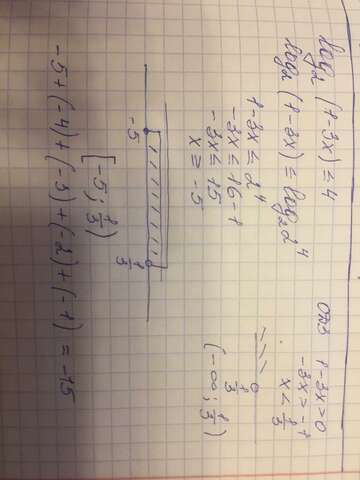 log₂ (1-3x) ≤ 4
log₂ (1-3x) ≤ log₂2⁴
1-3x ≤ 2⁴
-3x ≤ 16-1
-3x ≤ 15
x ≥ -5
ОДЗ 1-3x>0
-3x>-1
x < 1/3
1/3
(-∞; 1/3)
-5 1/3
[-5; 1/3)
-5+(-4)+(-3)+(-2)+(-1) = -15